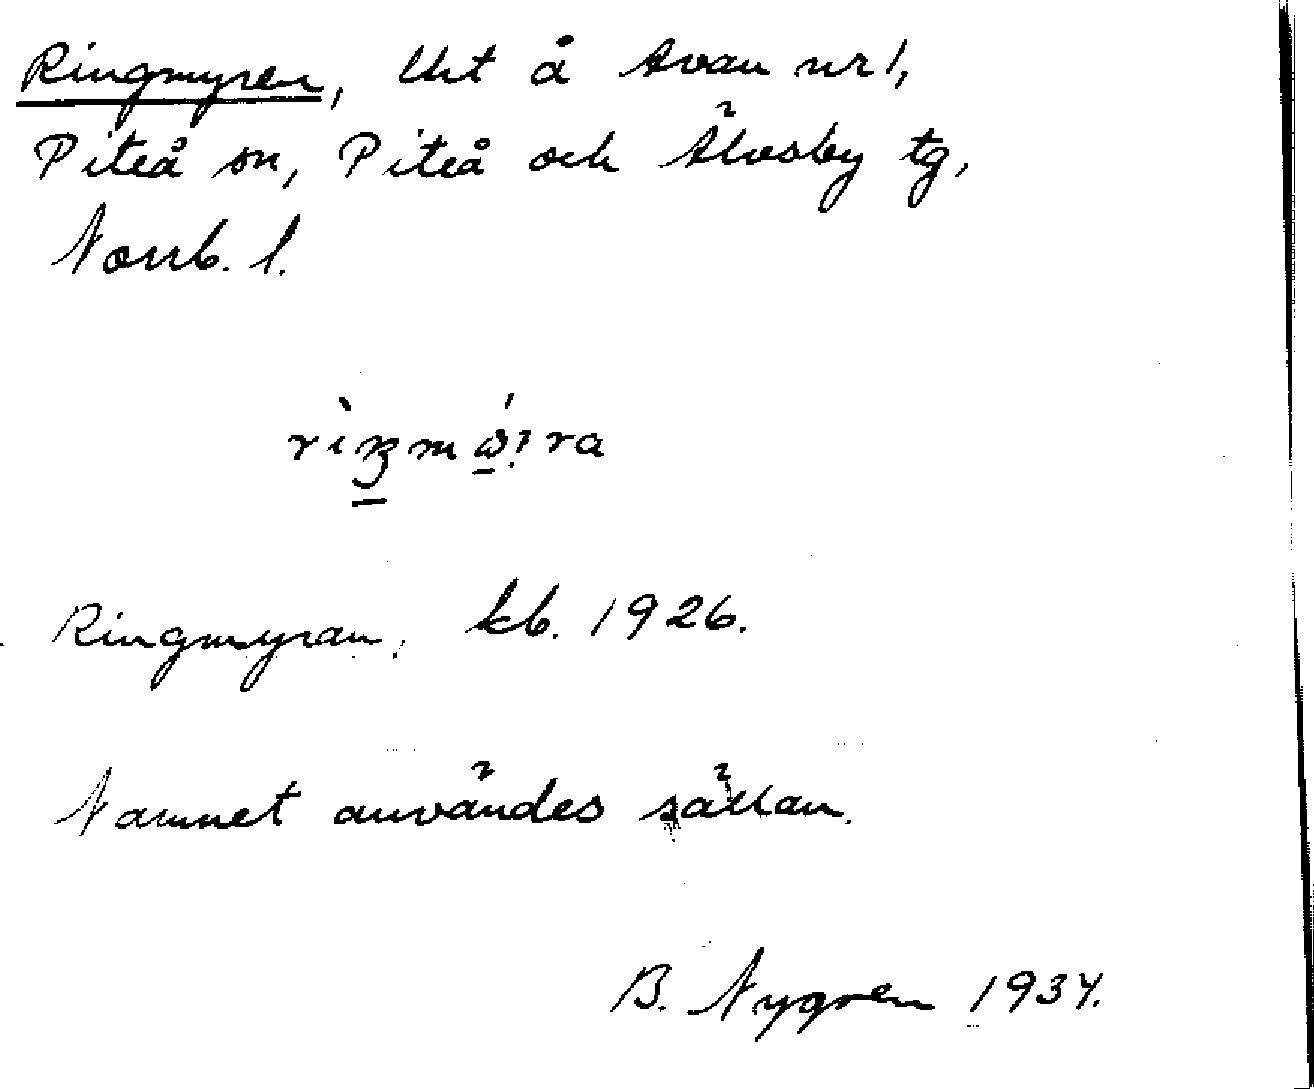 Ringmyren, lht å Avan nr 1,
Piteå sn, Piteå och Älvsby tg,
Norrb. l.
Ringmyran, kb. 1926.
Namnet användes sällan.
B. Nygren 1934.